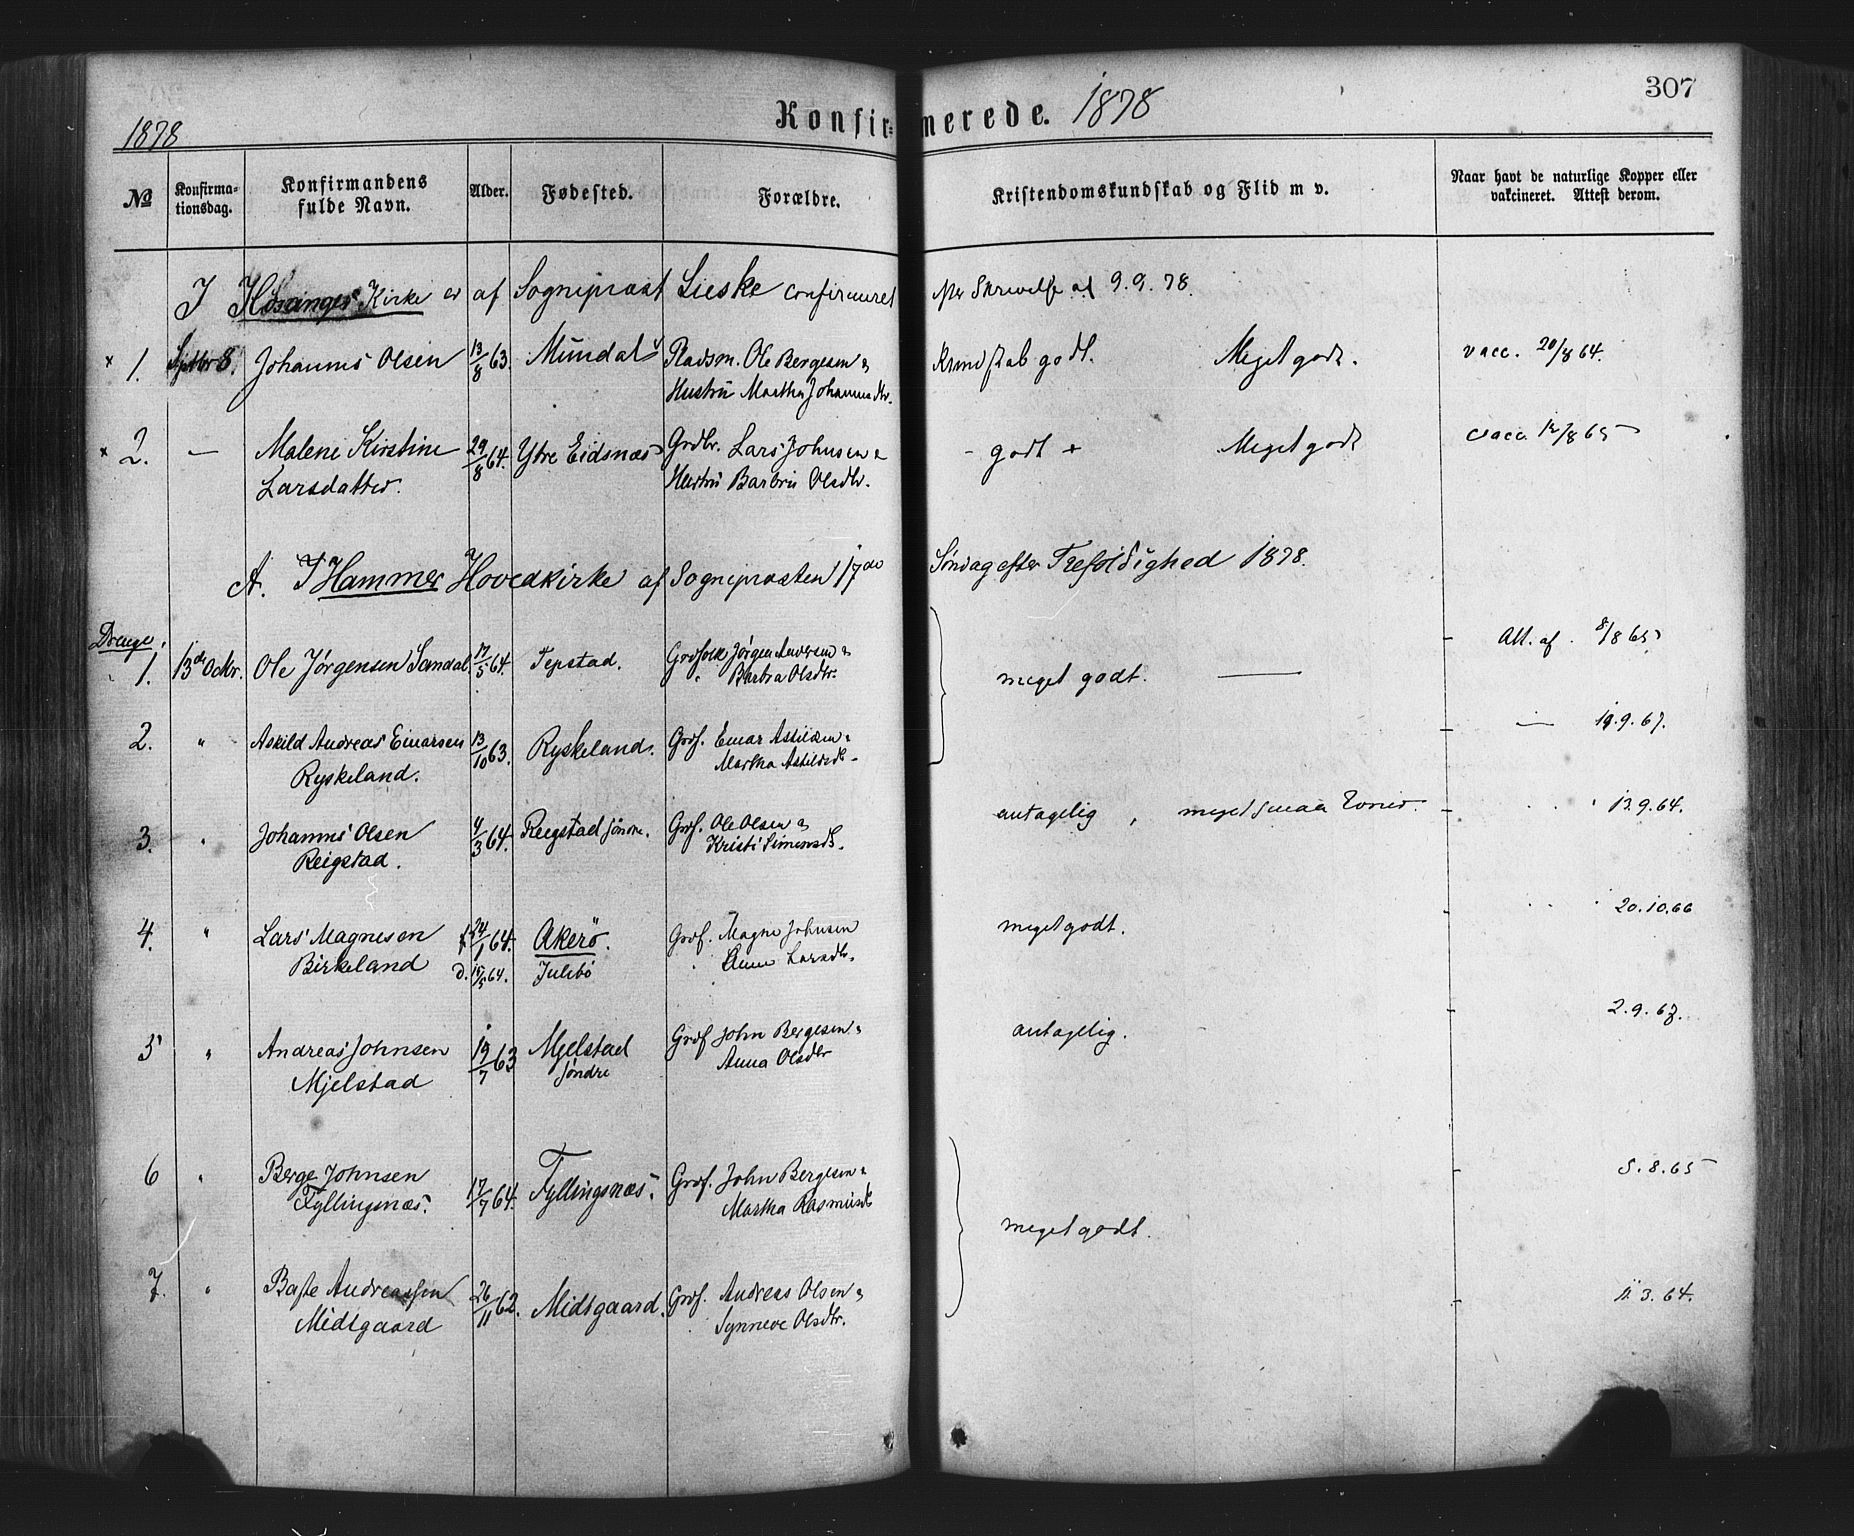 307
Konfirmerede. 1878
1878
No
Konfirma-
tionsdag.
Konfirmandens
fulde Navn.
Alder.
Fødested.
Forældre.
Kristendomskundskab og Flid m v.
Naar havt de naturlige Kopper eller
vakcineret. Attest derom.
I Hosanger Kirke er af Sogneprest Lieske confirmeret efter Skrivelse af 9.9.78.
× 1. Septbr 8. Johannes Olsen 13/8 63. Mundal Pladsm. Ole Bergesen & Kundskab godt. Meget godt. vacc. 20/8 64.
Hustru Martha Johannesdtr.
× 2. — Malene Kirstine 29/8 64. Ytre Eidsnæs Grdbr. Lars Johnsen & - godt + Meget godt vacc. 12/8 65
Larsdatter. Hustru Barbru Olsdtr.
A. I Hammer Hovedkirke af Sognepresten 17de Søndag efter Trefoldighed 1878.
Drenge.
1. 13de Octbr. Ole Jørgensen Sandal. 17/5 64. Tepstad. Grdfolk Jørgen Andersen & meget godt. — Att. af. 8/8 65
" Barbra Olsdtr.
2. " Askild Andreas Einarsen 13/10 63. Ryskeland. Grdf. Einar Askildsen & — 19.9.67.
Ryskeland. Martha Askildsdtr.
3. " Johannes Olsen 4/3 64. Reigstad søndre. Grdf. Ole Olsen & antagelig, meget smaa Evner. 13.9.64.
Reigstad. Kristi Simonsdtr.
4. " Lars Magnesen f. 24/1 64. Akerö. Grdf. Magne Johnsen meget godt. 20.10.66
Birkeland d. 15/5 64. Julebö " Anna Larsdtr.
5 " Andreas Johnsen 19/7 63 Mjelstad Grdf John Bergesen & antagelig. 2.9.67.
Mjelstad søndre Anna Olsdtr
6 " Berge Johnsen 17/7 64. Fyllingsnæs. Grdf. John Bergesen & 5.8.65
Fyllingsnæs. Martha Rasmusdtr
meget godt.
7. " Baste Andreassen 26/11 62. Midtgaard. Grdf. Andreas Olsen & 11.3.64.
Midtgaard Synneve Olsdtr.